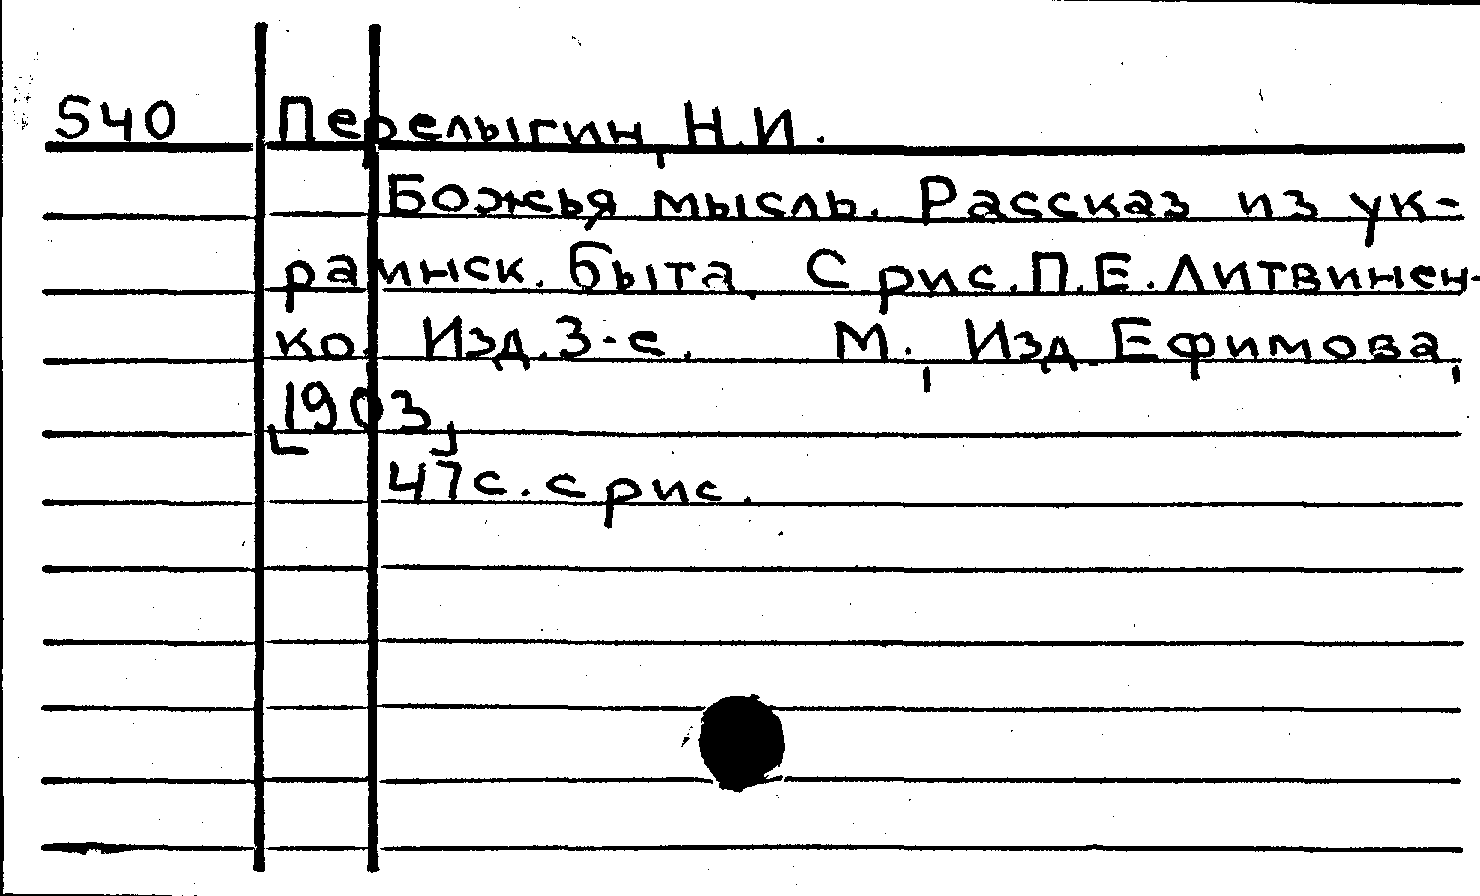 540 Перелыгин, Н.И.
Божья мысль. Рассказ из ук-
раинск. быта. С рис. П.Е. Литвинен-
ко. Изд. 3-е. М., Изд. Ефимова,
[1903]
47 с. с рис.